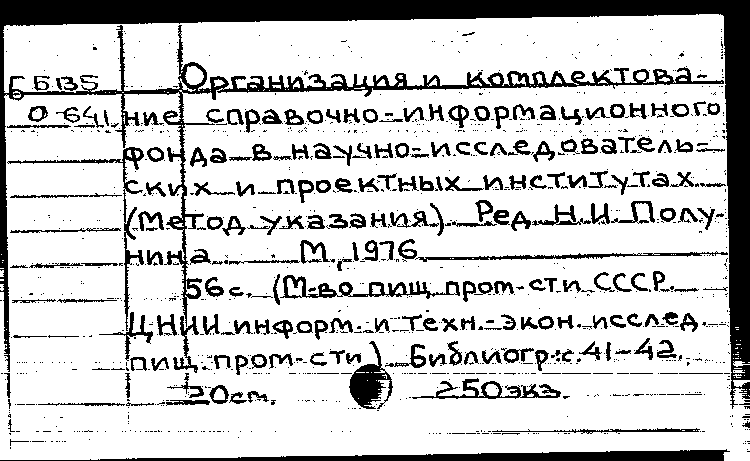 Б Б135 Организация и комплектова-
О-641 ние справочно-информационного
фонда в научно-исследователь-
ских и проектных институтах
(Метод. указания). Ред. Н.И. Полу-
нина. М., 1976.
56с. (М-во пищ. пром-сти СССР.
ЦНИИ информ. и техн.-экон. исслед.
пищ. пром-сти). Библиогр.: с. 41-42.
20см. 250экз.